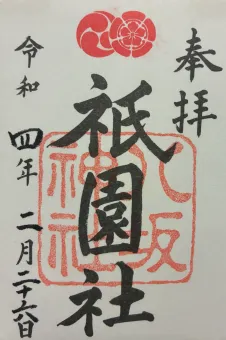 奉拝
祇園社
八坂神社
令和四年二月二十六日